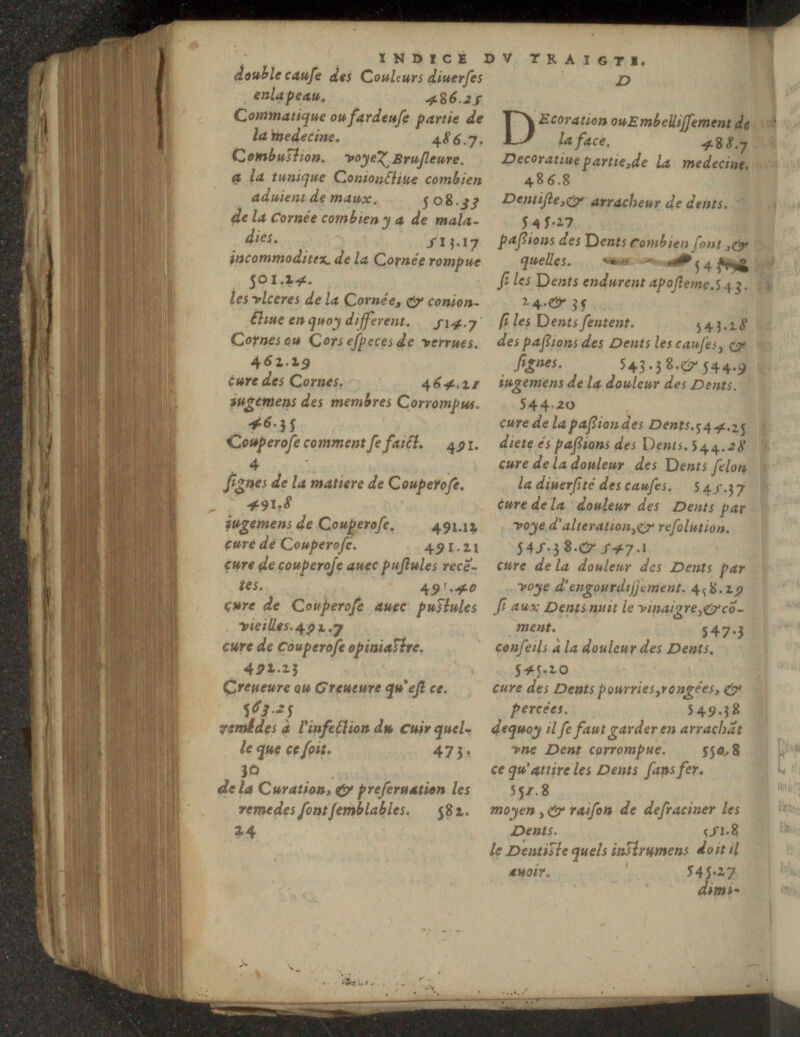 INDICE DV TRAIGTE.
double cauſe des Couleurs diuerſes
en la peau. 486.25
Commatique ou fardeuſe partie de
la medecine. 486.7.
Combuſtion. voyez Bruſleure.
a la tunique Conionctiue combien
aduient de maux. 508.33
de la Cornée combien y a de mala-
dies. 513.17
incommoditez de la Cornée rompue
501.24.
les vlceres de la Cornée, & conion-
ctiue en quoy different. 514.7
Cornes ou Cors eſpeces de verrues.
462.29
cure des Cornes. 464.21
iugemens des membres Corrompus.
46.35
Couperoſe comment ſe faict. 491.
4
ſignes de la matiere de Couperoſe.
491.8
iugemens de Couperoſe. 491.12
cure de Couperoſe. 491.21
cure de couperoſe auec puſtules recẽ-
tes. 491.40
cure de Couperoſe auec puſtules
vieilles. 492.7
cure de Couperoſe opiniaſtre.
492.23
Creueure ou Greueure qu'eſt ce.
563.25
remedes à l'infection du Cuir quel-
le que ce ſoit. 473.
30
de la Curation, & preſeruation les
remedes ſont ſemblables. 582.
24
D
DEcoration ou Embelliſſement de
la face. 488.7
Decoratiue partie, de la medecine.
486.8
Dentiſte, & arracheur de dents.
545.27
paſsions des Dents combien ſont, &
quelles. 54
ſi les Dents endurent apoſteme. 543.
24. & 35
ſi les Dents ſentent. 543.28
des paſsions des Dents les cauſes, &
ſignes. 543.38. & 544.9
iugemens de la douleur des Dents.
544.20
cure de la paſsion des Dents. 544.25
diete és paſsions des Dents. 544.28
cure de la douleur des Dents ſelon
la diuerſité des cauſes. 545.37
cure de la douleur des Dents par
voye d'alteration, & reſolution.
545.38. & 547.1
cure de la douleur des Dents par
voye d'engourdiſſement. 458.29
ſi aux Dents nuit le vinaigre, & cõ-
ment. 547.3
conſeils à la douleur des Dents.
545.20
cure des Dents pourries, rongées, &
percées. 549.38
dequoy il ſe faut garder en arrachãt
vne Dent corrompue. 550.8
ce qu'attire les Dents ſans fer.
551.8
moyen, & raiſon de deſraciner les
Dents. 551.8
le Dentiſte quels inſtrumens doit il
auoir. 545.27
dimi-